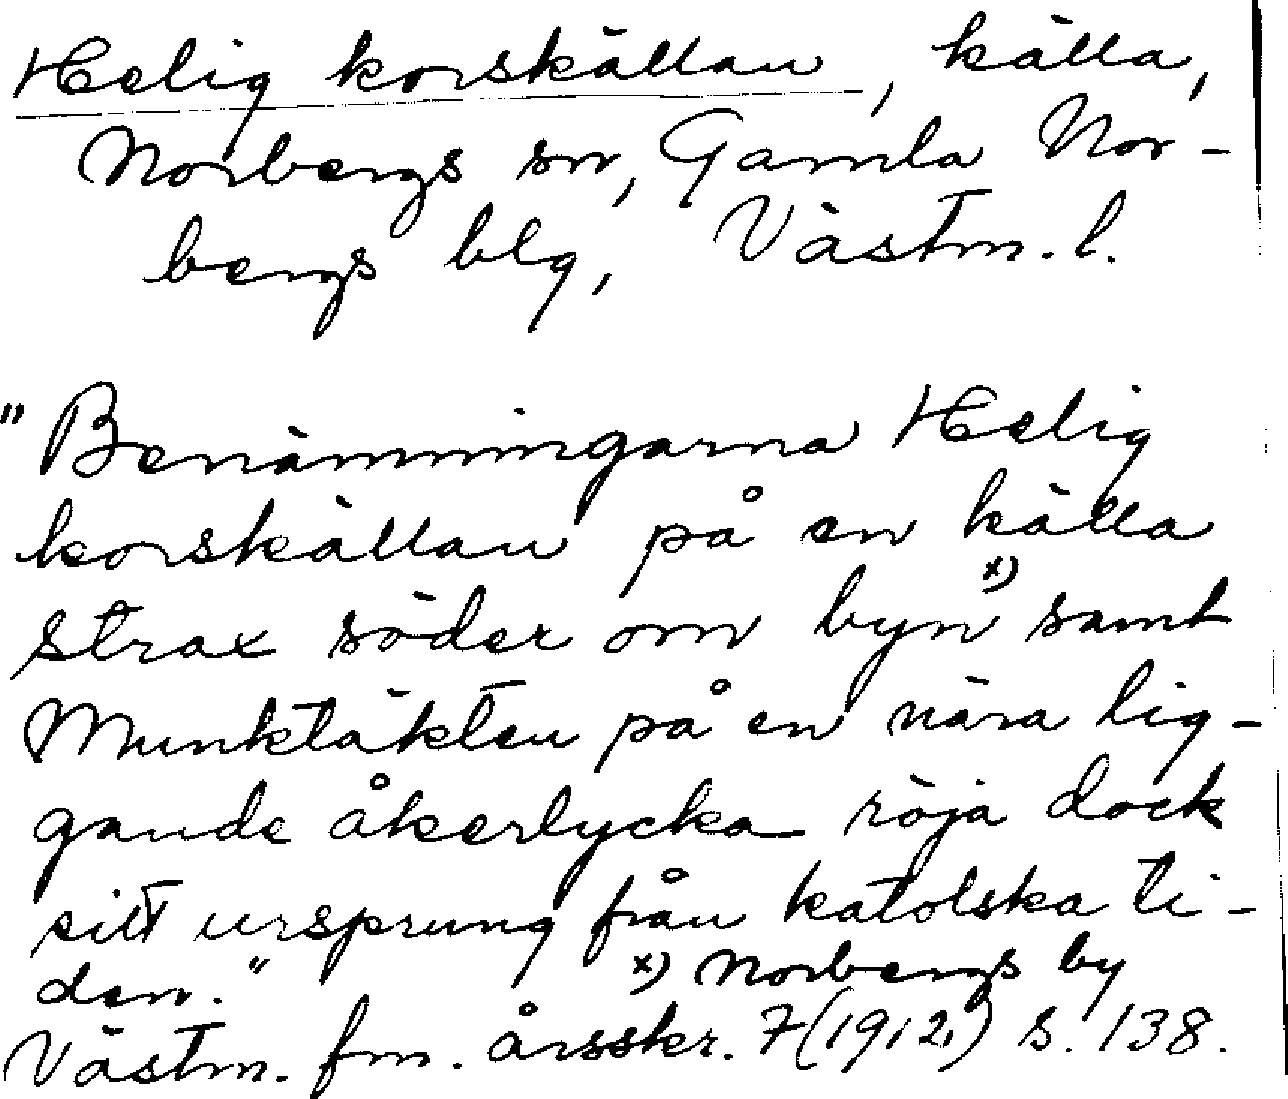 Helig korskällan, källa,
Norbergs sn, Gamla Nor-
bergs blg, Västm. l.
"Benämningarna Helig
korskällan på en källa
strax söder om byn x) samt
Munktäkten på en nära lig-
gande åkerlycka röja dock
sitt ursprung från katolska ti-
den." x) Norbergs by
Västm. fm. årsskr. 7 (1912) s. 138.